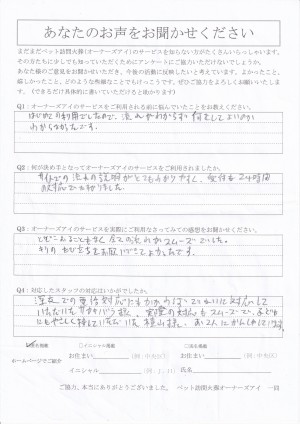 あなたのお声をお聞かせください
まだまだペット訪問火葬(オーナーズアイ)のサービスを知らない方がたくさんいらっしゃいます。
その方たちに少しでも知っていただくためにアンケートにご協力いただけないでしょうか。
あなた様のご意見をお聞かせいただき、今後の活動に反映したいと考えています。よかったこと、
嬉しかったこと、どのような些細なことでもけっこうです。ぜひご協力をよろしくお願いいたします。
(できるだけ具体的に書いていただけると助かります)
Q1:オーナーズアイのサービスをご利用される前に悩んでいたことをお教えください。
はじめての利用でしたので、流れがわからず何をしてよいのか
わからなかったです。
Q2:何が決め手となってオーナーズアイのサービスをご利用されましたか。
サイトでの流れの説明がとてもわかりやすく、受付も24時間
対応で
Q3:オーナーズアイのサービスを実際にご利用なさってみての感想をお聞かせください。
とどこおることもなく全ての流れがスムーズでした。
Q4:対応したスタッフの対応はいかがでしたか。
深夜での電話対応にもかかわらずていねいに対応して
いただいた
にもやさしく接していただいた
イニシャル掲載
ホームページでご紹介
お住まい
イニシャル
お住まい
氏名
ご協力、本当にありがとうございました。 ペット訪問火葬オーナーズアイ 一同